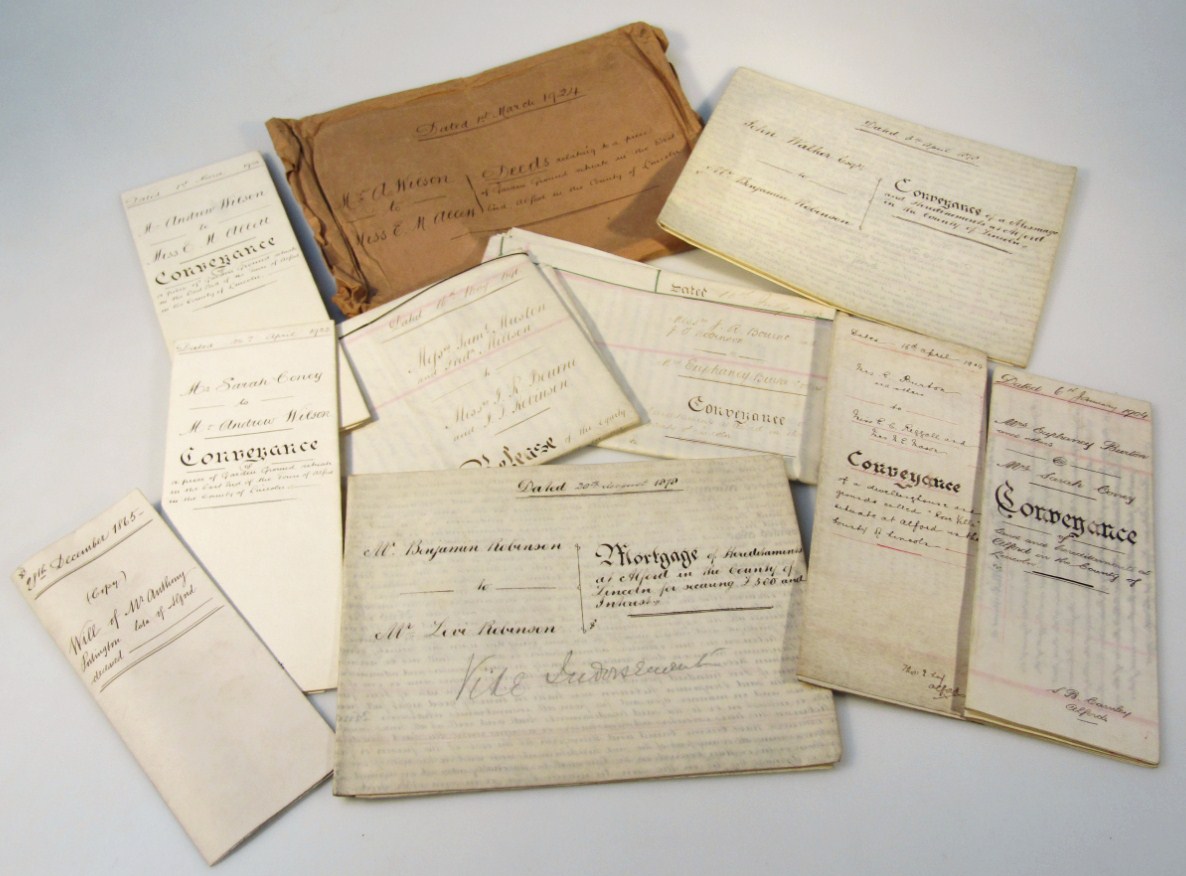 Dated 1st March 1924
Mr A Wilson
to
Miss C. M. Allett
Deeds relating to a piece
of Garden Ground situate in the East
End Alford in the County of Lincoln
April
John Walker Esqr
to
Mr Benjamin Robinson
Conveyance of a Messuage
and Hereditaments at Alford
in the County of Lincoln
Dated 1st March
Mr Andrew Wilson
to
Miss C. M. Allett
Conveyance
of
a piece of Garden Ground situate
in the East End of the Town of Alford
in the County of Lincoln
Dated April
Mrs Sarah Coney
to
Mr Andrew Wilson
Conveyance
of
a piece of Garden Ground situate
in the East End of the Town of Alford
in the County of Lincoln
Dated
Messrs Saml Muston
and
to
Messrs J. R. Bourne
and J. J. Robinson
Release of the Equity
Dated
Messrs J. R. Bourne and
J. J. Robinson
to
Mrs Euphaney
Conveyance
Dated 16th April
Mrs E. Burton
and others
to
Conveyance
of a dwellinghouse and
grounds called "Rose Villa"
situate at Alford in the
County of Lincoln
Dated 6th January 1904
Mrs Euphaney Burton
and others
to
Mrs Sarah Coney
Conveyance
of
Land and Hereditaments at
Alford in the County of
Lincoln
Alford
27th December 1865
(Copy)
Will of Mr Anthony
late of Alford
deceased
Dated 20th 1870
Mr Benjamin Robinson
to
Mr Levi Robinson
Mortgage of Hereditaments
at Alford in the County of
Lincoln for securing £500 and
Interest
Vide Indorsement